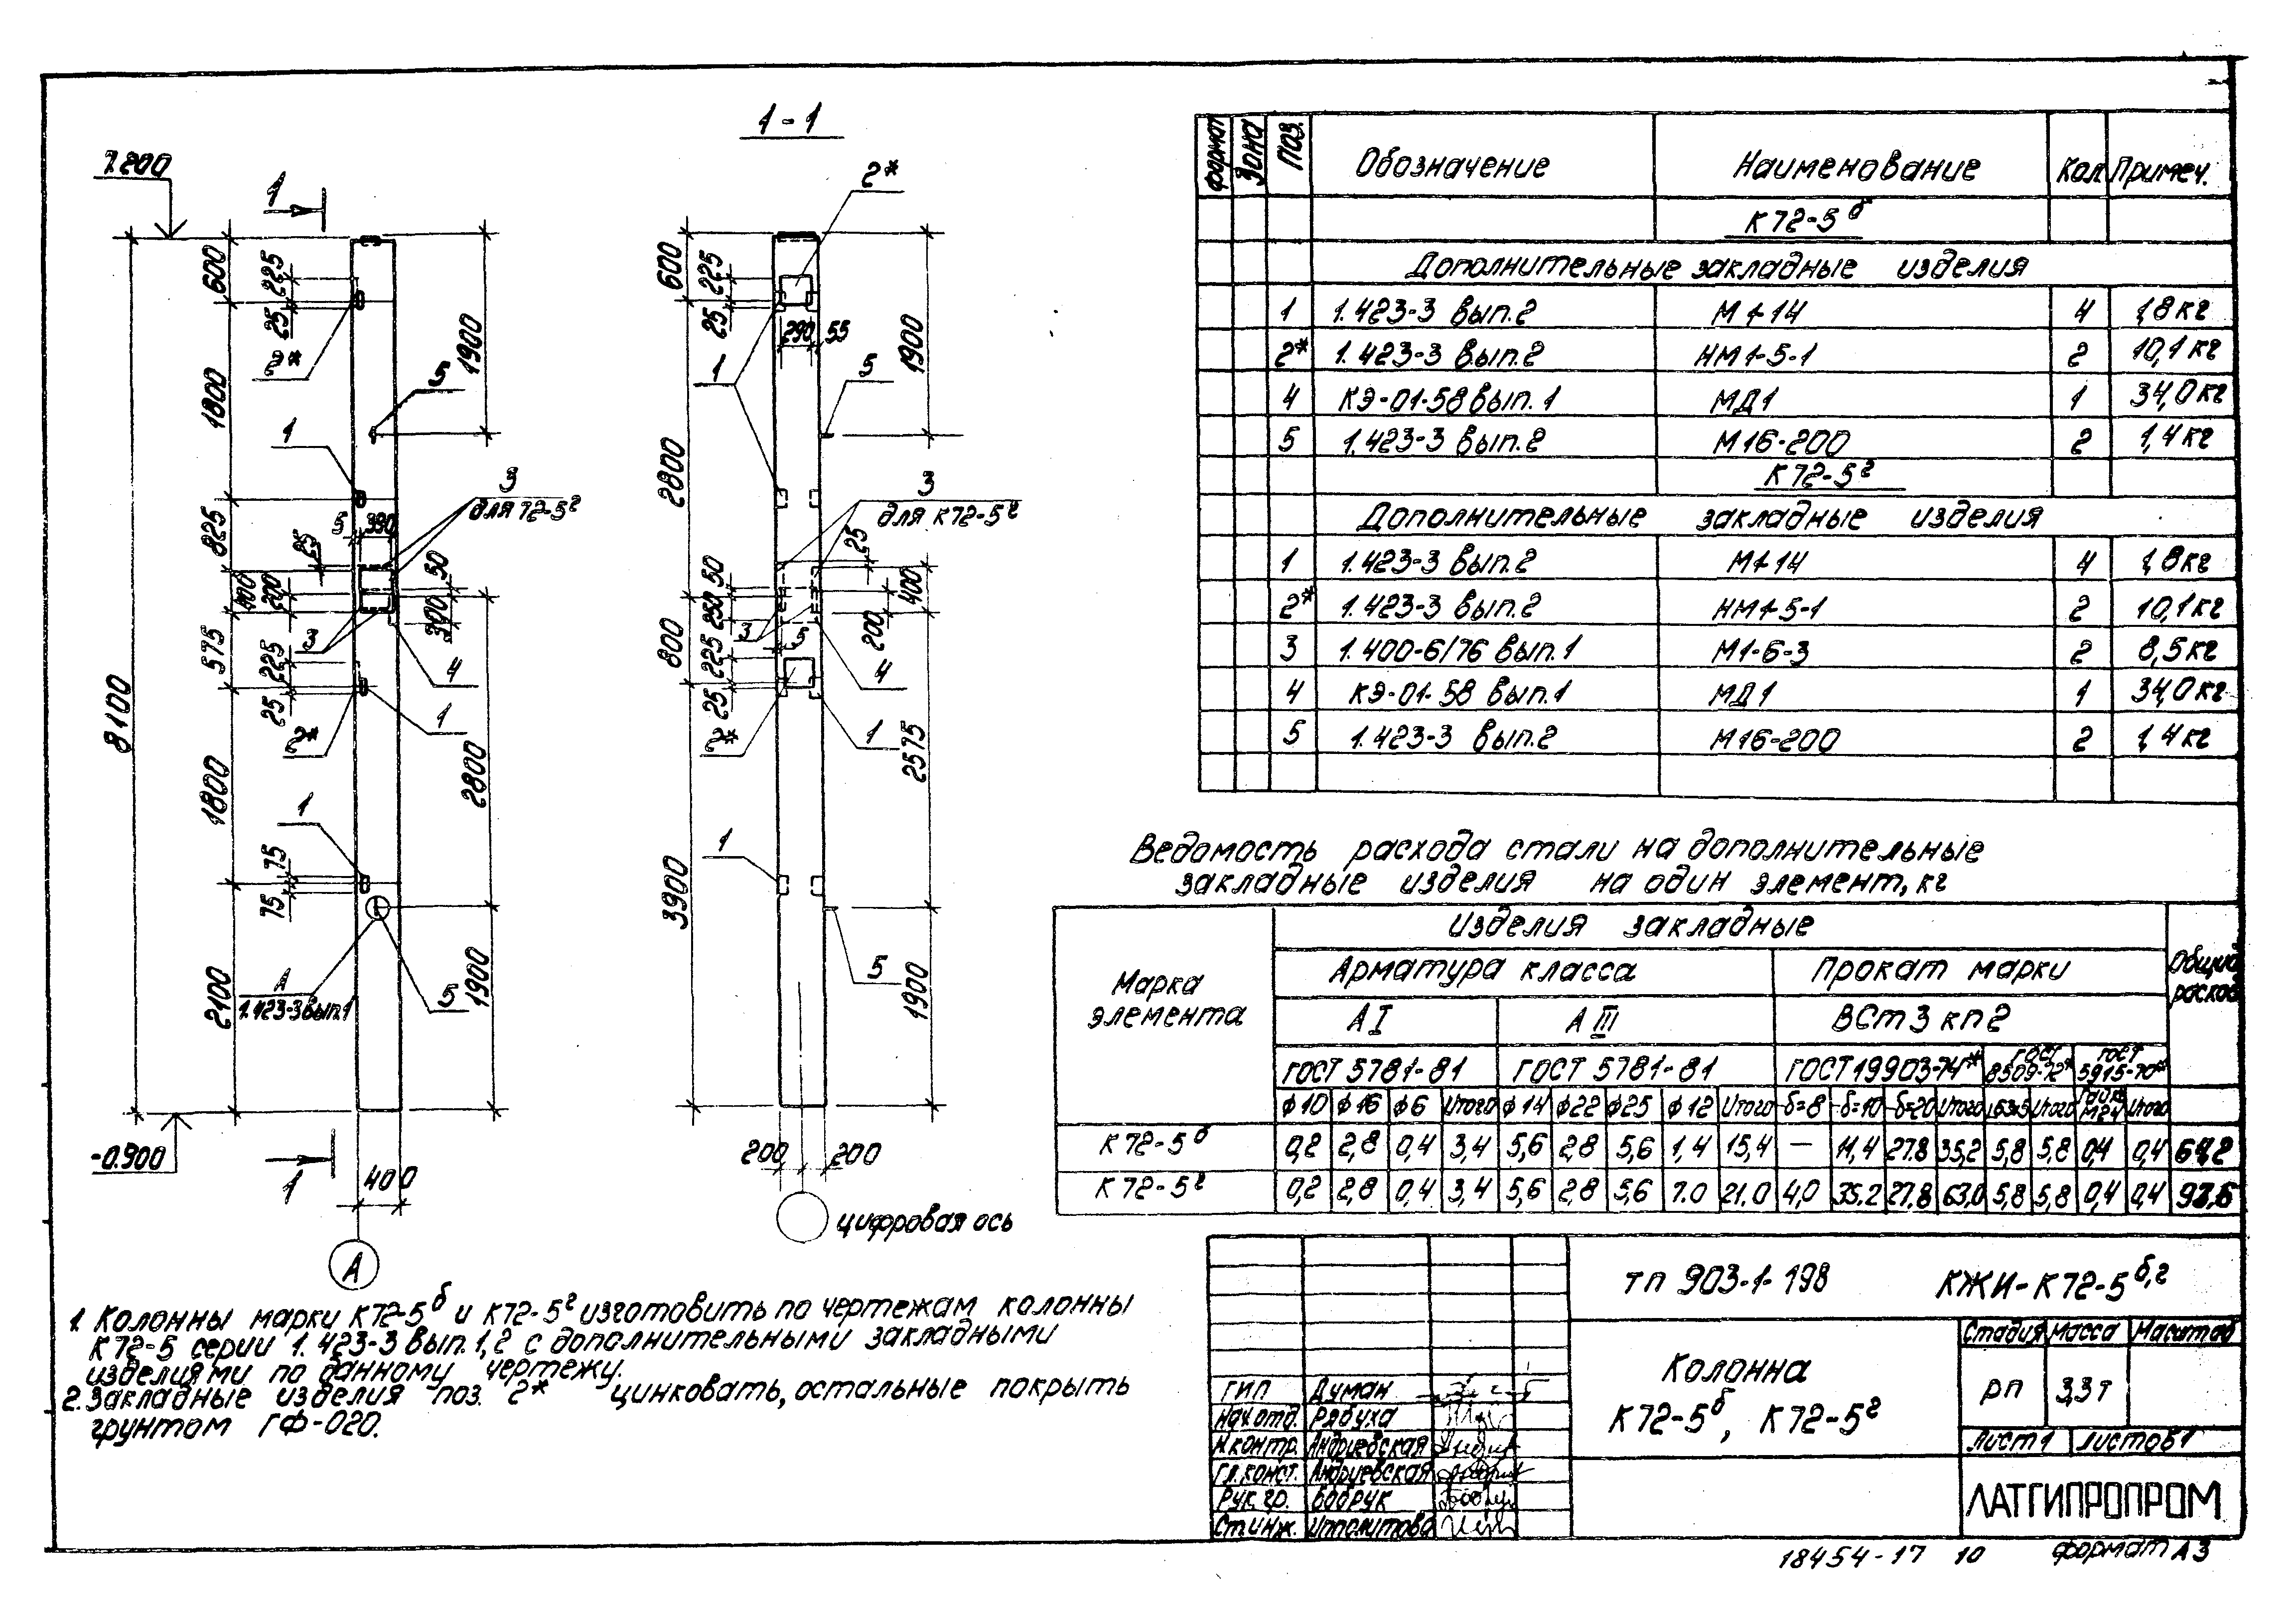 1-1
7.200
1
2*
600
225
25
2*
1800
1
5
1900
3
для 72-5г
5
390
825
25
400
200
50
300
3
575
225
25
4
1
2*
8100
1800
2800
1
75
75
2100
А
1.423-3 вып.1
5
1900
-0.900
1
400
А
600
225
25
290
55
1
5
1900
2800
3
для К72-5г
25
50
250
400
200
3
5
800
225
25
4
2*
1
2575
1
3900
5
1900
200
200
цифровая ось
1. Колонны марки К72-5б и К72-5г изготовить по чертежам колонны
К72-5 серии 1.423-3 вып.1,2 с дополнительными закладными
изделиями по данному чертежу.
2. Закладные изделия поз. 2* цинковать, остальные покрыть
грунтом ГФ-020.
формат Зона Поз. Обозначение Наименование Кол. Примеч.
К72-5б
Дополнительные закладные изделия
1 1.423-3 вып.2 М1-14 4 1,8кг
2* 1.423-3 вып.2 НМ1-5-1 2 10,1кг
4 КЭ-01-58 вып.1 МД1 1 34,0кг
5 1.423-3 вып.2 М16-200 2 1,4кг
К72-5г
Дополнительные закладные изделия
1 1.423-3 вып.2 М1-14 4 1,8кг
2* 1.423-3 вып.2 НМ1-5-1 2 10,1кг
3 1.400-6/76 вып.1 М1-6-3 2 8,5кг
4 КЭ-01-58 вып.1 МД1 1 34,0кг
5 1.423-3 вып.2 М16-200 2 1,4кг
Ведомость расхода стали на дополнительные
закладные изделия на один элемент, кг
Марка элемента
Изделия закладные
Общий расход
Арматура класса Прокат марки
АI АIII ВСт3кп2
ГОСТ 5781-81 ГОСТ 5781-81 ГОСТ19903-74* ГОСТ 8509-72* ГОСТ 5915-70*
ф10 ф16 ф6 Итого ф14 ф22 ф25 ф12 Итого δ=8 δ=10 δ=20 Итого L63×5 Итого Гайка М24 Итого
К72-5б 0,2 2,8 0,4 3,4 5,6 2,8 5,6 1,4 15,4 — 11,4 27.8 35,2 5,8 5,8 0,4 0,4
К72-5г 0,2 2,8 0,4 3,4 5,6 2,8 5,6 7.0 21.0 4,0 35.2 27.8 63,0 5,8 5,8 0,4 0,4
тп 903-1-198 КЖИ-К72-5б,г
Колонна
К72-5б, К72-5г
Стадия Масса Масштаб
рп 3,3т
Лист1 Листов1
ГИП Думан
Нач.отд. Рябуха
Н.контр. Андриевская
Гл.конст. Андриевская
Рук.гр. Бобрук
Ст.инж. Ипполитова
ЛАТГИПРОПРОМ
18454-17 10 формат А3